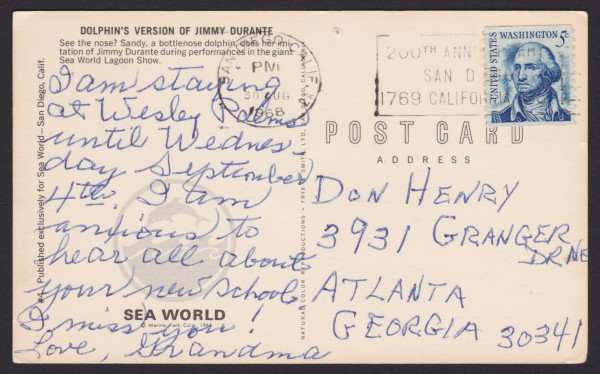 DOLPHIN'S VERSION OF JIMMY DURANTE
See the nose? Sandy, a bottlenose dolphin, does her imi-
tation of Jimmy Durante during performances in the giant
Sea World Lagoon Show.
I am staying
at Wesley Palms
until Wednes-
day September
4th. I am
anxious to
hear all about
your new school.
I miss you!
Love, Grandma
SEA WORLD
© Marine Park Corp.
#4 Published exclusively for Sea World — San Diego, Calif.
NATURAL COLOR REPRODUCTIONS • FRYE & SMITH, LTD., SAN DIEGO, CALIFORNIA
SAN DIEGO CALIF
PM
30 AUG
1968
200TH ANNIVERSARY
SAN D
1769 CALIFORNIA
UNITED STATES
WASHINGTON 5c
POST CARD
ADDRESS
DON HENRY
3931 GRANGER
DR NE
ATLANTA
GEORGIA 30341